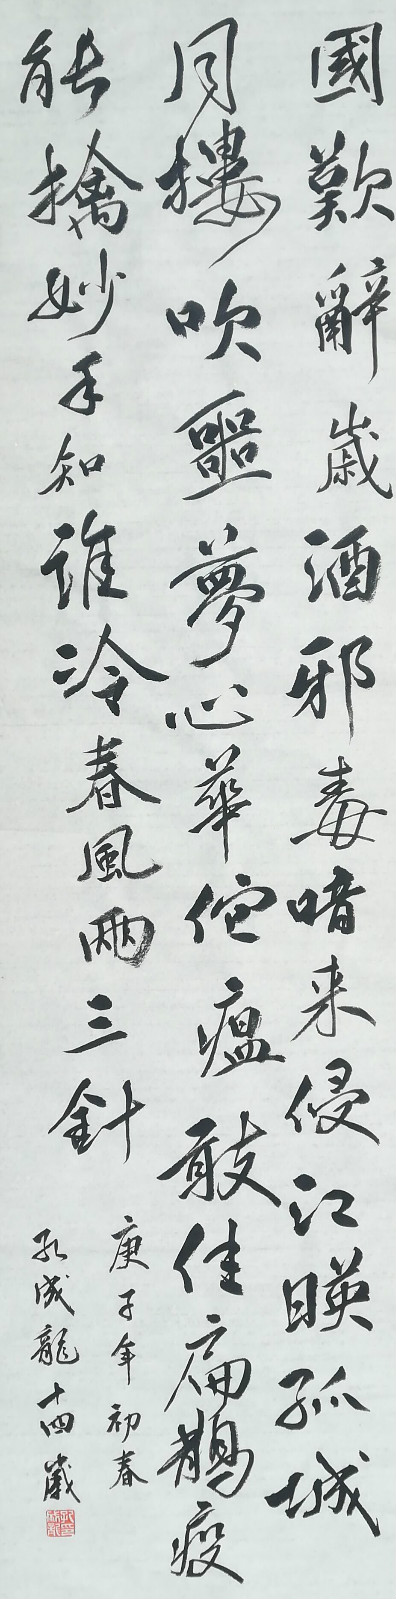 國歎辭歲酒邪毒暗来侵江暎孤城
月樓吹噩夢心華佗瘟敢住扁鵲疫
能擒妙手知誰冷春風兩三針
庚子年初春
孔成龍十四歲